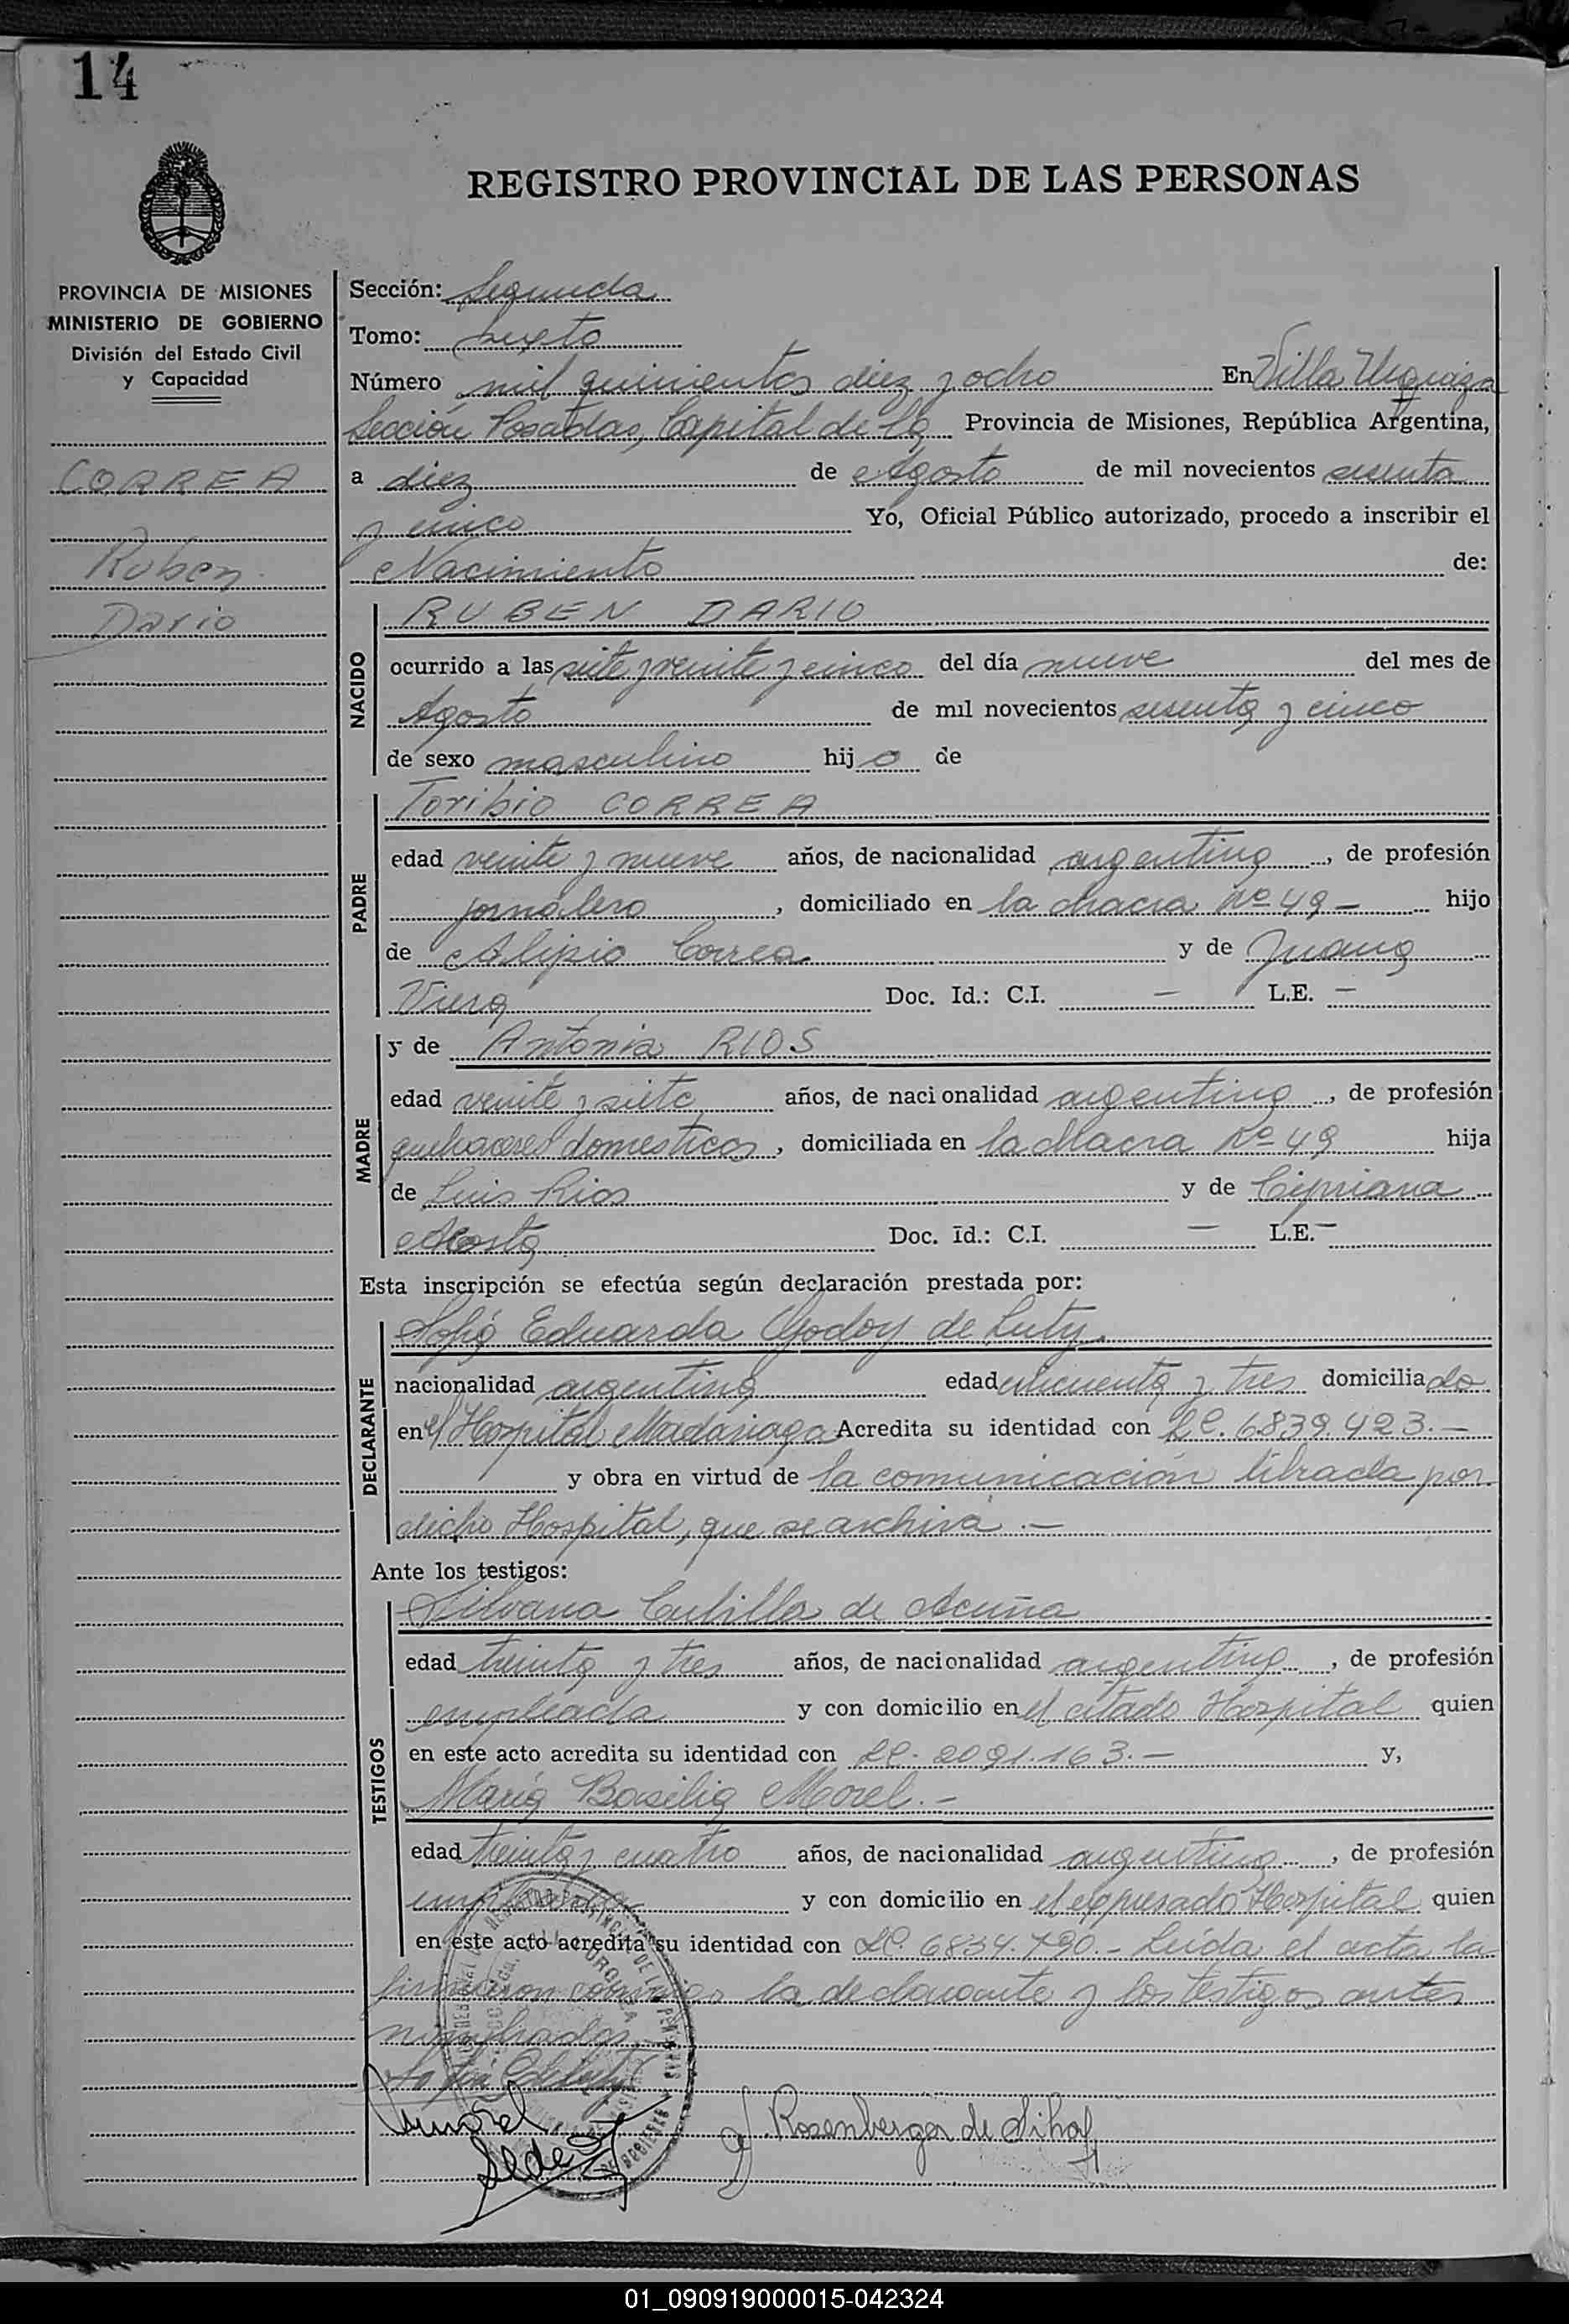 14
REGISTRO PROVINCIAL DE LAS PERSONAS
PROVINCIA DE MISIONES
MINISTERIO DE GOBIERNO
División del Estado Civil
y Capacidad
CORREA
Ruben
Dario
Sección: Segunda
Tomo: Sexto
Número mil quinientos diez y ocho En Villa Urquiza
Sección Posadas, Capital de la Provincia de Misiones, República Argentina,
a diez de Agosto de mil novecientos sesenta
y cinco Yo, Oficial Público autorizado, procedo a inscribir el
Nacimiento de:
NACIDO
RUBEN DARIO
ocurrido a las siete y veinte y cinco del día nueve del mes de
Agosto de mil novecientos sesenta y cinco
de sexo masculino hijo de
PADRE
Toribio CORREA
edad veinte y nueve años, de nacionalidad argentina, de profesión
jornalero, domiciliado en la chacra Nº 49 - hijo
de Alipio Correa y de Juana
Viera Doc. Id.: C.I. — L.E. —
MADRE
y de Antonia RIOS
edad veinte y siete años, de nacionalidad argentina, de profesión
quehaceres domesticos, domiciliada en la chacra Nº 49 hija
de Luis Rios y de Cipriana
Acosta Doc. Id.: C.I. — L.E. —
Esta inscripción se efectúa según declaración prestada por:
DECLARANTE
Sofia Eduarda Godoy de Luty.
nacionalidad argentina edad cincuenta y tres domiciliado
en el Hospital Madariaga Acredita su identidad con LC. 6839.423.—
y obra en virtud de la comunicación librada por
dicho Hospital, que se archiva.—
Ante los testigos:
TESTIGOS
Silvana Cubilla de Acuña
edad treinta y tres años, de nacionalidad argentina, de profesión
empleada y con domicilio en el citado Hospital quien
en este acto acredita su identidad con LC. 2091.163.— y,
Maria Basilia Morel.-
edad treinta y cuatro años, de nacionalidad argentina, de profesión
empleada y con domicilio en el expresado Hospital quien
en este acto acredita su identidad con LC. 6834.790.- Leida el acta la
firmaron conmigo la declarante y los testigos antes
nombrados.
Rosenberger de
01_090919000015-042324